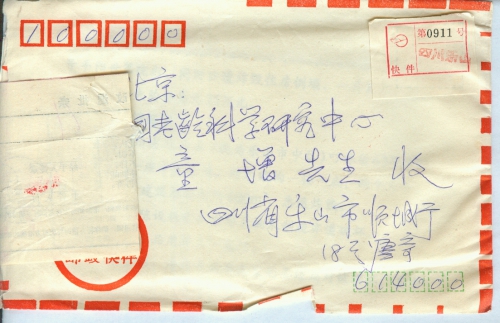 100000
第0911号
快件
北京:
国老龄科学研究中心
童增先生收
四川省乐山市
18号唐
614000
邮政快件